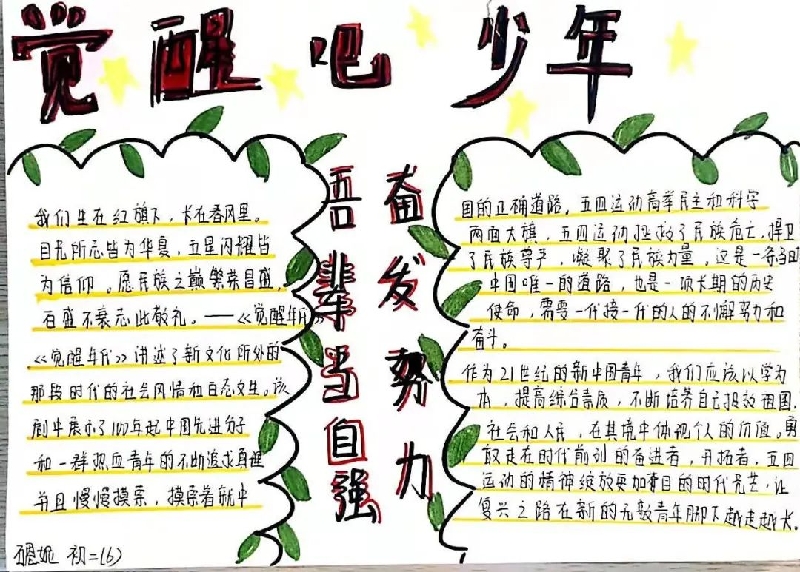 觉醒吧 少年
我们生在红旗下，长在春风里。
目光所至皆为华夏，五星闪耀皆
为信仰。愿民族之巅繁荣昌盛，
百盛不衰 此敬礼。——《觉醒年代》
《觉醒年代》讲述了新文化 所处的
那段时代的社会风情和百态 生。该
剧中展示了100年 中国先进分子
和一群热血青年的不断追求真理
并且慢慢摸索，摸索着
吾辈当自强
奋发努力
国的正确道路。五四运动高举民主和科学
两面大旗，五四运动拯救了民族危亡，捍卫
了民族尊严，凝聚了民族力量，这是一条
中国唯一的道路，也是一项长期的历史
使命，需要一代接一代的人的不懈努力和
奋斗。
作为21世纪的新中国青年，我们应该以学为
本，提高综合素质，不断培养自己 祖国，
社会和人民，在其境中体现个人的价值。勇
取走在时代前列的奋进者，开拓者，五四
运动的精神绽放更加夺目的时代光芒，让
复兴之路在新的无数青年脚下越走越长。
初二(6)